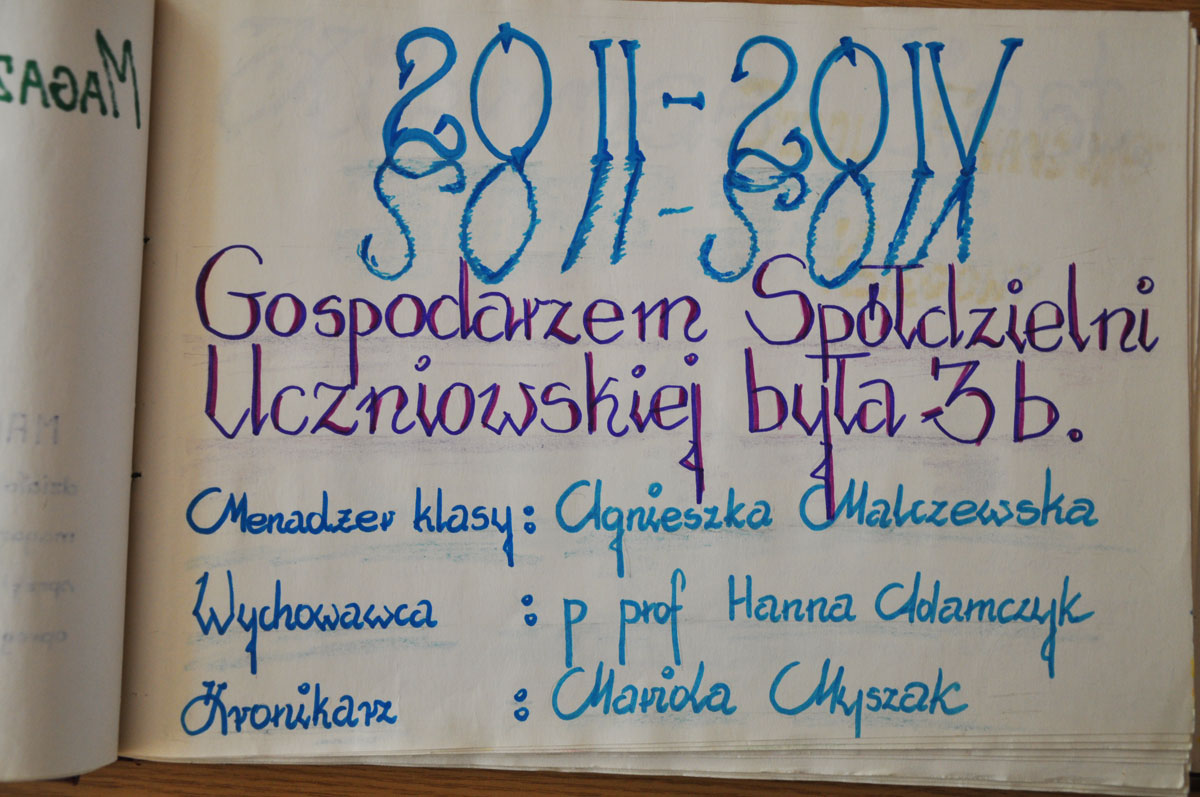 20 II - 20 IV
Gospodarzem Spółdzielni
Uczniowskiej była 3 b.
Menadżer klasy : Agnieszka Malczewska
Wychowawca : p prof Hanna Adamczyk
Kronikarz : Mariola Myszak